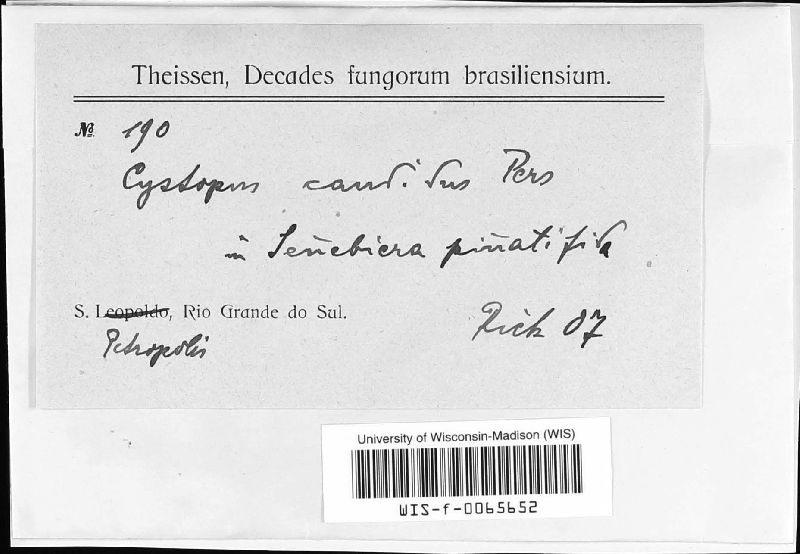 Theissen, Decades fungorum brasiliensium.
№ 190
Cystopus candidus Pers
in Seňebiera piňatifida
S. Leopoldo, Rio Grande do Sul.
Petropolis
Rick 07
University of Wisconsin-Madison (WIS)
WIS-f-0065652